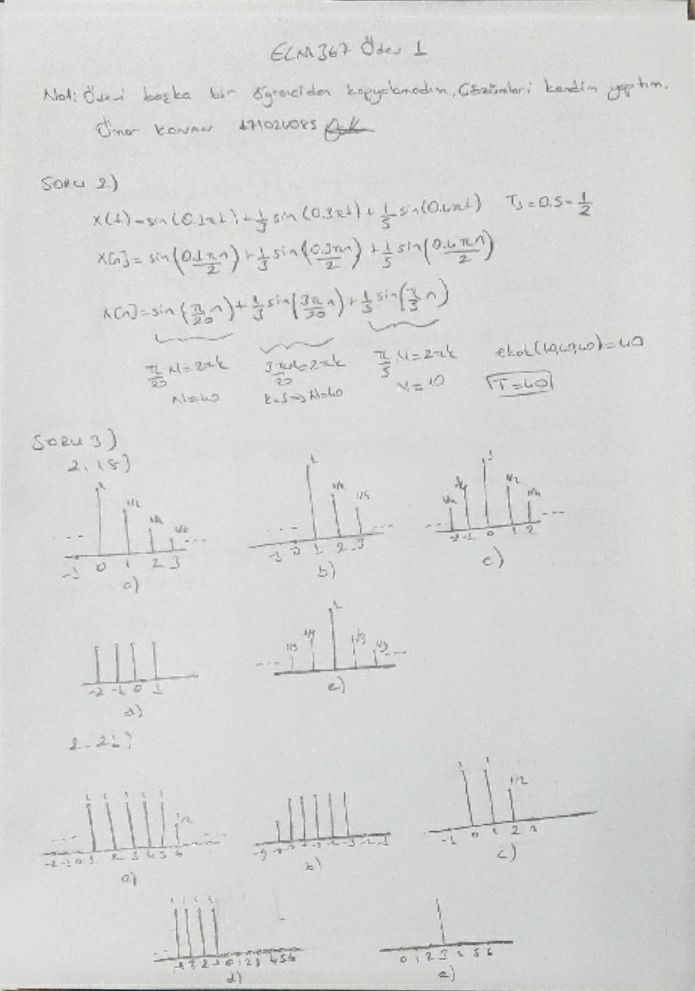 ELM 367 Ödev 1
Not: Ödevi başka bir öğrenciden kopyalamadım, Çözümleri kendim yaptım.
Ömer KONAN
SORU 2)
x(t)=sin(0.1πt)+1/3 sin(0.3πt)+1/5 sin(0.4πt) Ts=0.5=1/2
x[n]=sin(0.1πn/2)+1/3 sin(0.3πn/2)+1/5 sin(0.4πn/2)
x[n]=sin(π/20 n)+1/3 sin(3π/20 n)+1/5 sin(π/5 n)
π/20 N=2πk 3π/20 N=2πk π/5 N=2πk ekok(40,40,10)=40
N=40 k=3⇒N=40 N=10 T=40
SORU 3)
2.18)
1 1/2 1/4
-1 0 1 2 3
a)
1 1/2 1/4
1 2 3
b)
1 1/2 1/4
-2 -1 0 1 2
c)
-2 -1 0 1
d)
1
e)
1 1 1 1 1 1/2
-2 -1 0 1 2 3 4 5 6
a)
b)
1 1 1/2
-1 0 1 2 3
c)
d)
0 1 2 3 4 5 6
e)